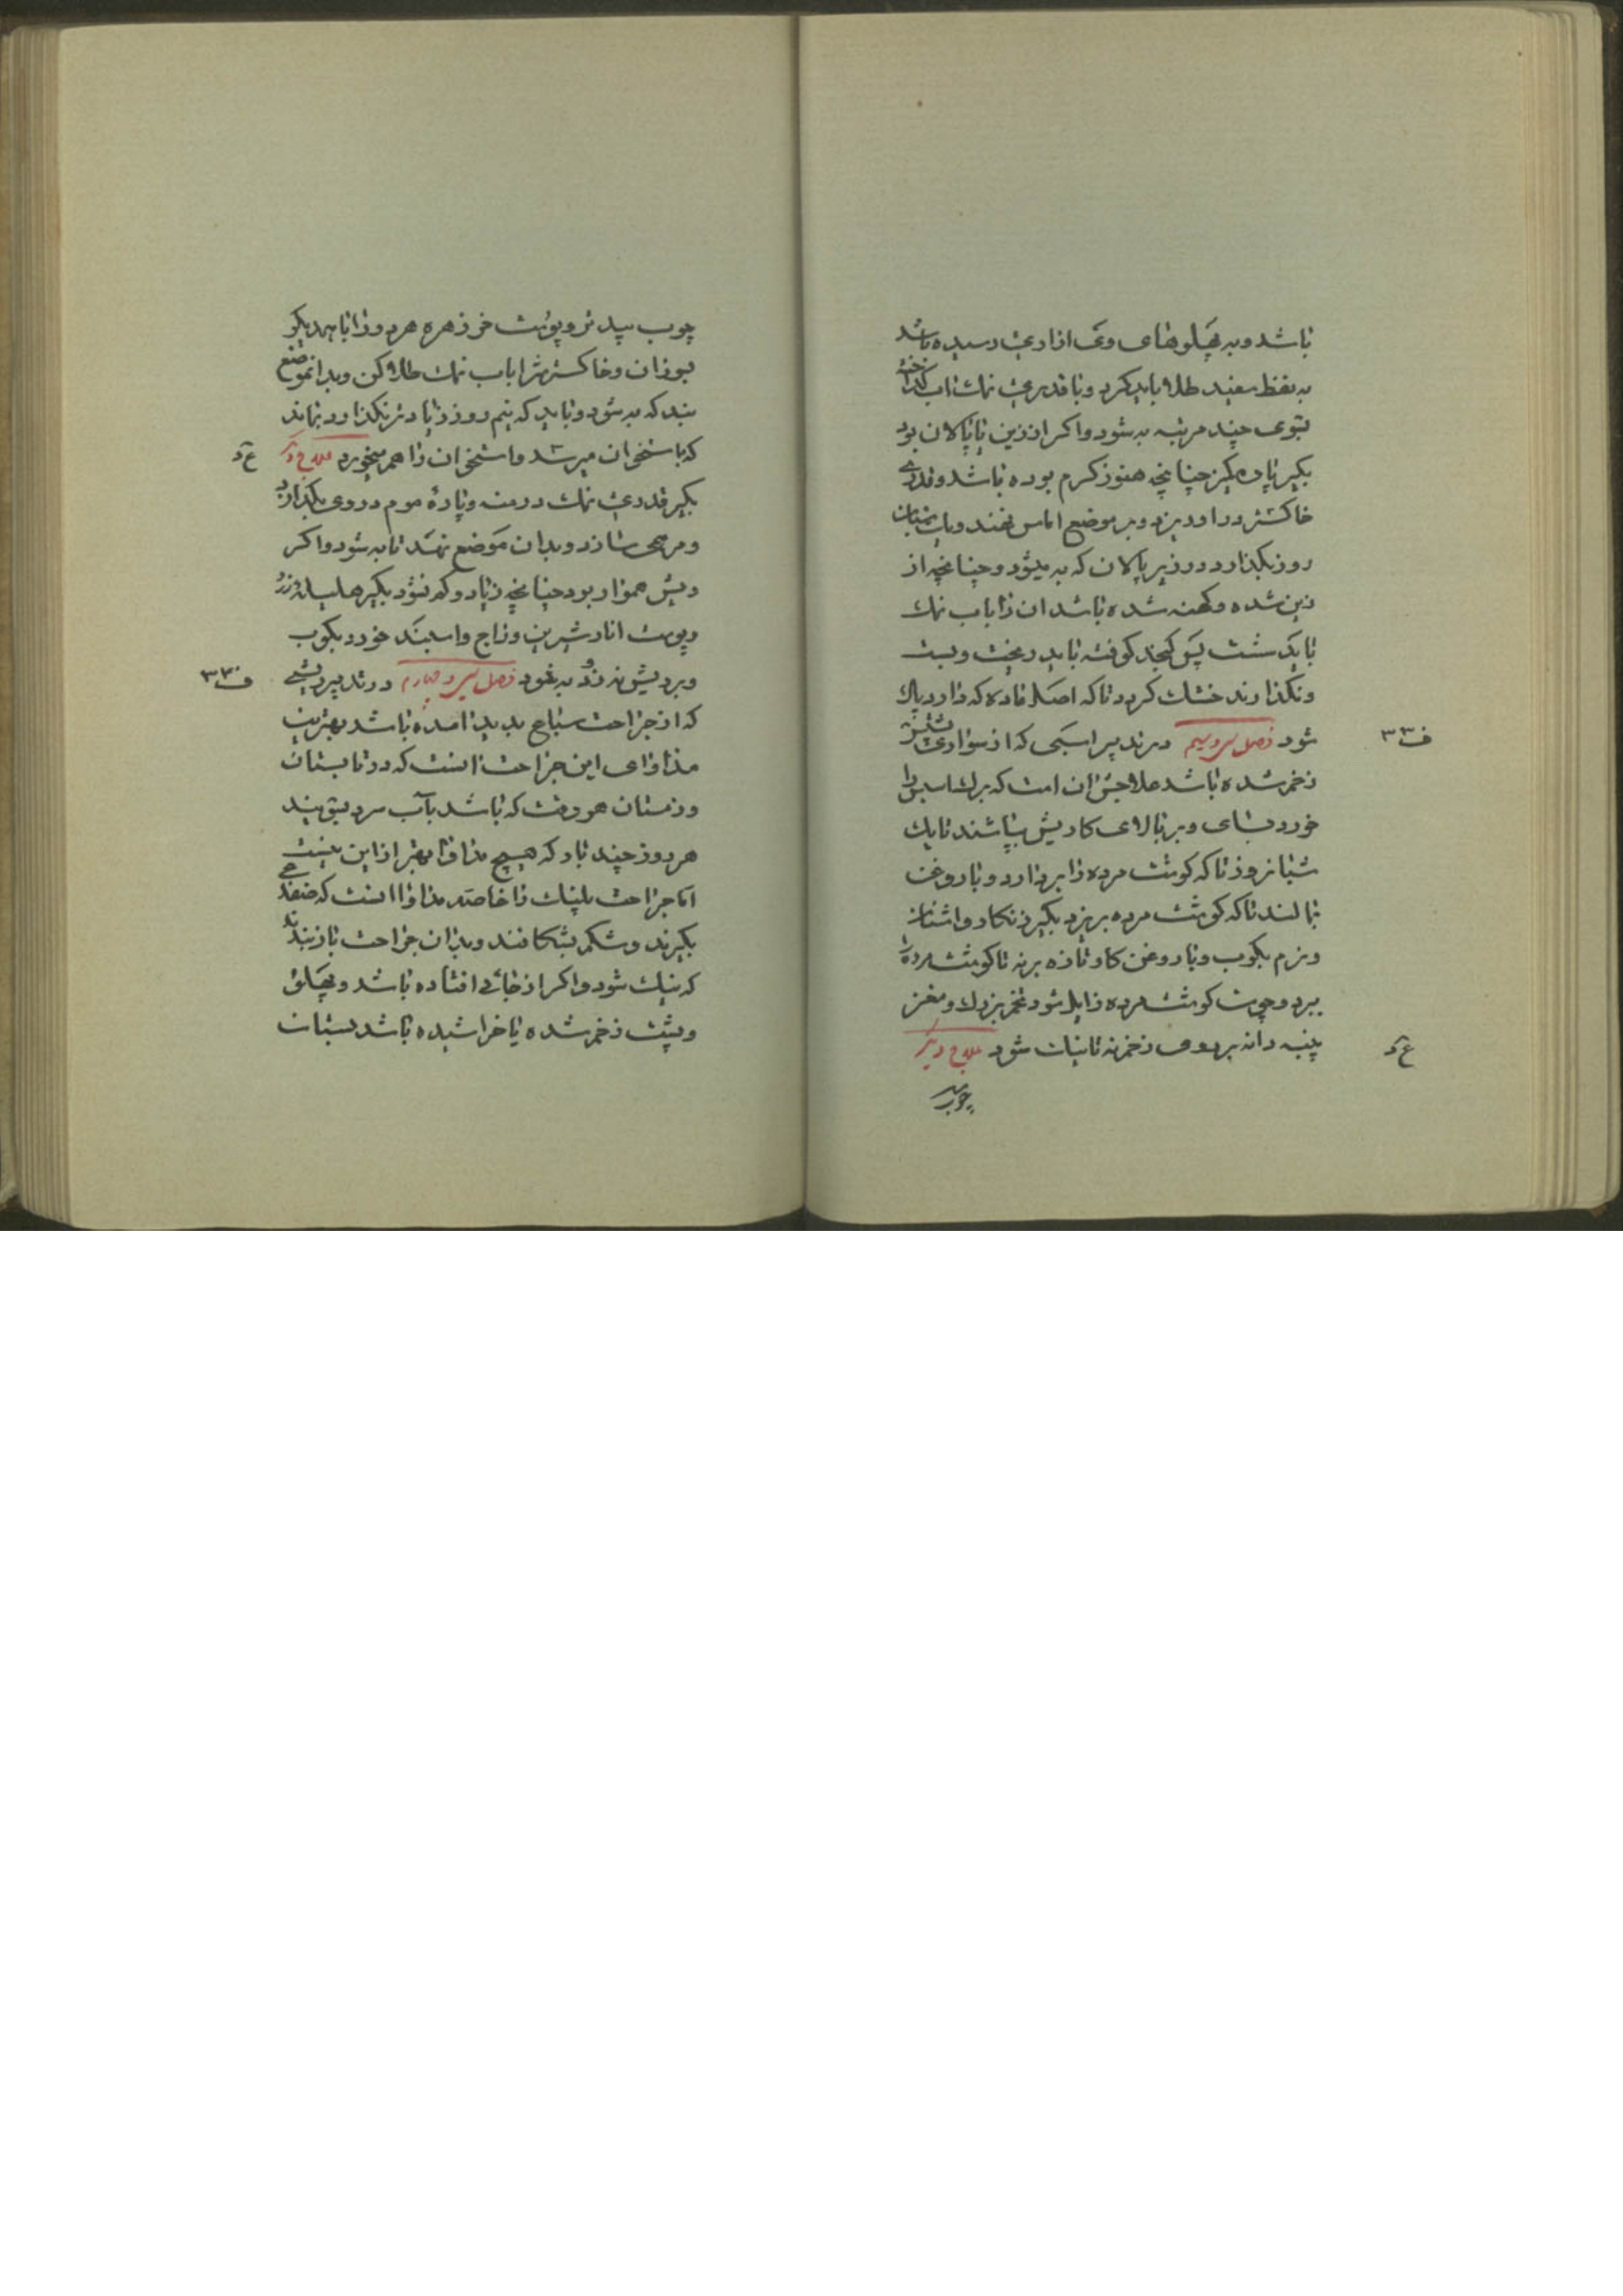 باشد و به پهلوهای وی ازاری رسیده باشد
به نفط سفید طلا باید کرد و با قدری نمک ناب کداخته
بقوی چند مرتبه به شود واکر از زین یا پالان بود
بکیر پاره کمیز چنانچه هنوز کرم بوده باشد و قدری
خاکستر در او ریزد و بر موضع اماس نهند و
روز بکذارد در زیر پالان که به میشود و چنانچه از
زین شده و کهنه شده باشد ان را باب نمک
باید شست پس کنجد کوفته باید ریخت و بست
و نکذارند خشک کردد تا که اصل ماده که دارد پاک
شود فصل سی و سیم در تدبیر اسبی که از سواری
ف ٣٣
زخم شده باشد علاجش ان است که برک را
خورد بسای و بر بالای کاریش بپاشند تا یک
شبانروز تا که کوشت مرده را بردارد و با روغن
بمالند تا که کوشت مرده بریزد بکیر زنکار و اشنان
و نرم بکوب و با روغن کاو تازه برنه تا کوشت مرده را
ببرد و چون کوشت مرده زایل شود تخم بزرک و مغز
پنبه دانه بر روی زخم نه تا نبات شود علاج دیکر
ع د
چوب
چوب بید تر و پوست خر زهره هر دو را با همدیکر
بوزان و خاکسترش را باب نمک طلا کن و بدانموضع
بند که به شود و باید که نیم روز زیادتر نکذارد بماند
که باستخوان میرسد و استخوان را هم میخورد علاج دیکر
ع د
بکیر قدری نمک درمنه و پارهٔ موم در وی بکدازد
و مرهمی سازد و بدان موضع نهد تا به شود واکر
ریش هموار بود چنانچه زیاد و کم نشود بکیر هلیله زرد
و پوست انار شیرین و زاج و اسپند خورد بکوب
و بر ریش نه زود به شود فصل سی و چهارم در تدبیر ریشی
ف ٣٤
که از جراحت سباع پدید امده باشد بهترین
مداوای این جراحت انست که در تابستان
و زمستان هر وقت که باشد بآب سرد بشویند
هر روز چند بار که هیچ مداوا بهتر از این نیست
اما جراحت پلنک را خاصه مداوا انست که ضفدعی
بکیرند و شکم بشکافند و بدان جراحت باز بندند
که نیک شود واکر از جائی افتاده باشد و پهلو
و پشت زخم شده یا خراشیده باشد بستان